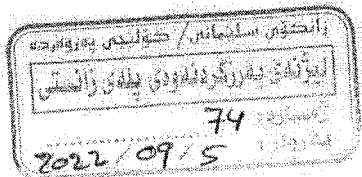 زانکۆی سلێمانی / کۆلێجی پەروەردە
لیژنەی بەرزکردنەوەی پلەی زانستی
ژمارە: 74
بەروار: 2022/09/5